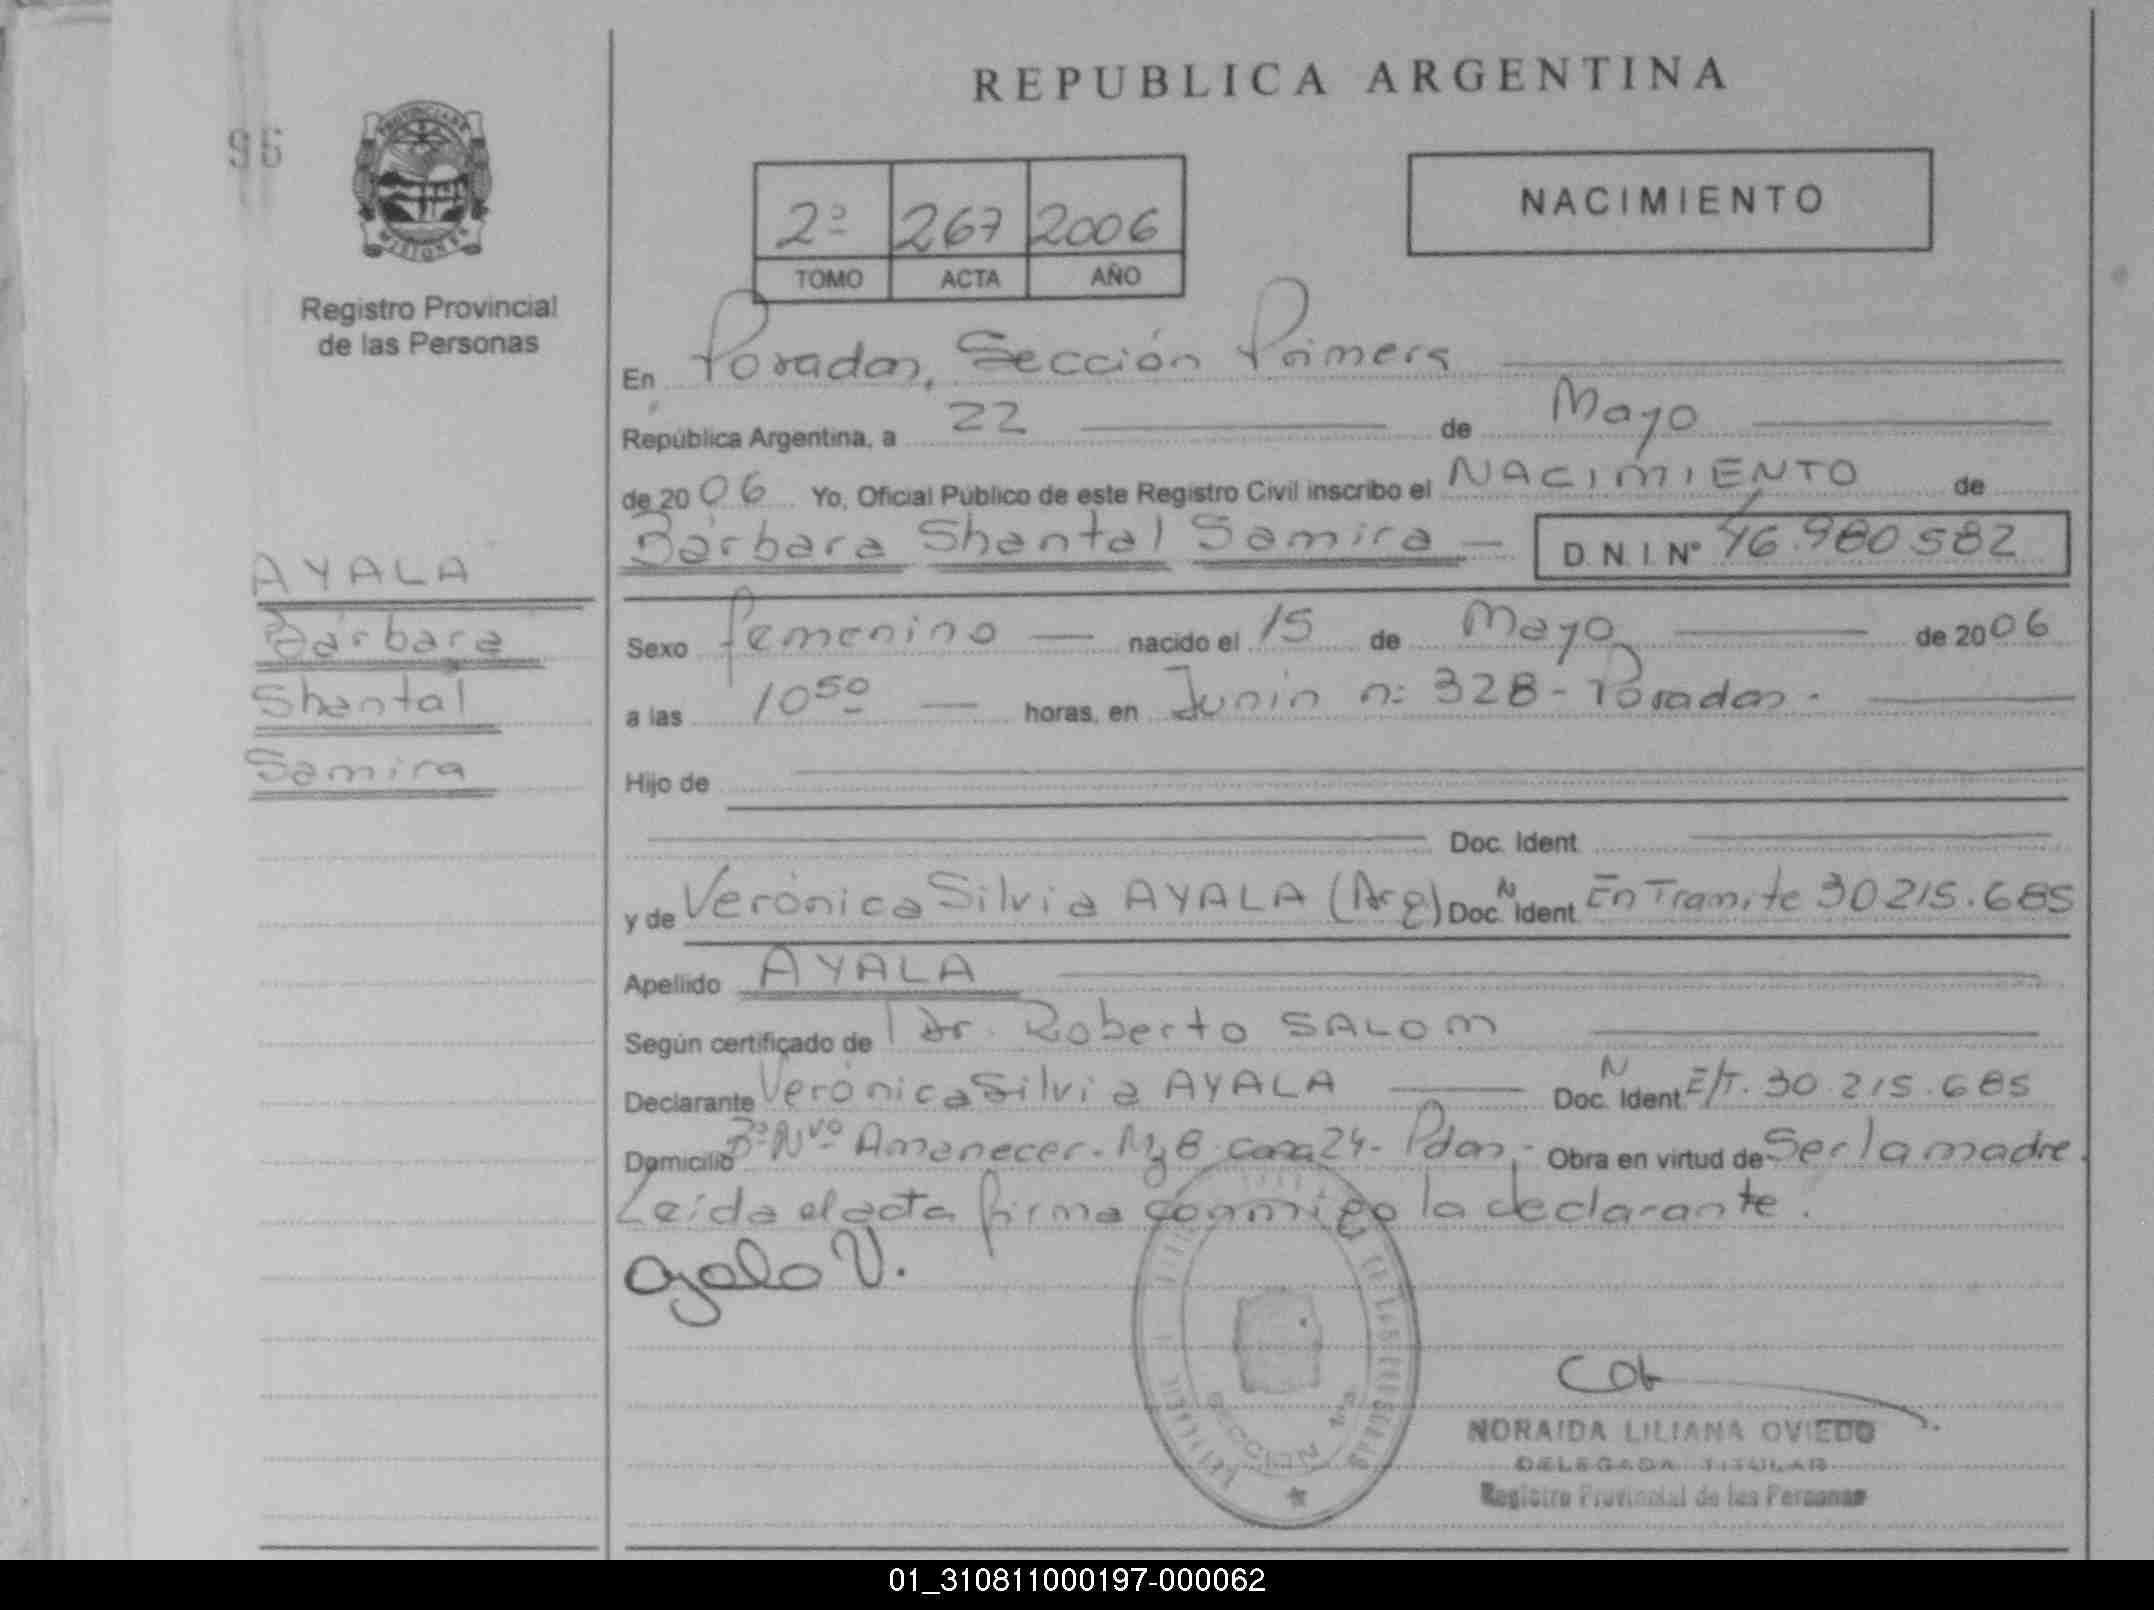 REPUBLICA ARGENTINA
96
PROVINCIA DE
MISIONES
Registro Provincial
de las Personas
2º 267 2006
TOMO ACTA AÑO
NACIMIENTO
En Posadas, Sección Primera
República Argentina, a 22 de Mayo
de 2006 Yo, Oficial Público de este Registro Civil inscribo el NACIMIENTO de
Bárbara Shantal Samira D.N.I. Nº 46.980582
AYALA
Bárbara
Shantal
Samira
Sexo femenino nacido el 15 de Mayo de 2006
a las 10 50 horas, en Junín nº 328 - Posadas.
Hijo de
Doc. Ident.
y de Verónica Silvia AYALA (Arg) Doc. N Ident En Tramite 30215.685
Apellido AYALA
Según certificado de Dr. Roberto SALOM
Declarante Verónica Silvia AYALA Doc. N Ident E/T. 30.215.685
Domicilio Bº Nvo Amanecer. Mz 8 casa 24 - Pdas. Obra en virtud de Ser la madre.
Leída el acta firma conmigo la declarante.
Ayala V.
SECCION 1ra
NORAIDA LILIANA OVIEDO
DELEGADA TITULAR
Registro Provincial de las Personas
01_310811000197-000062